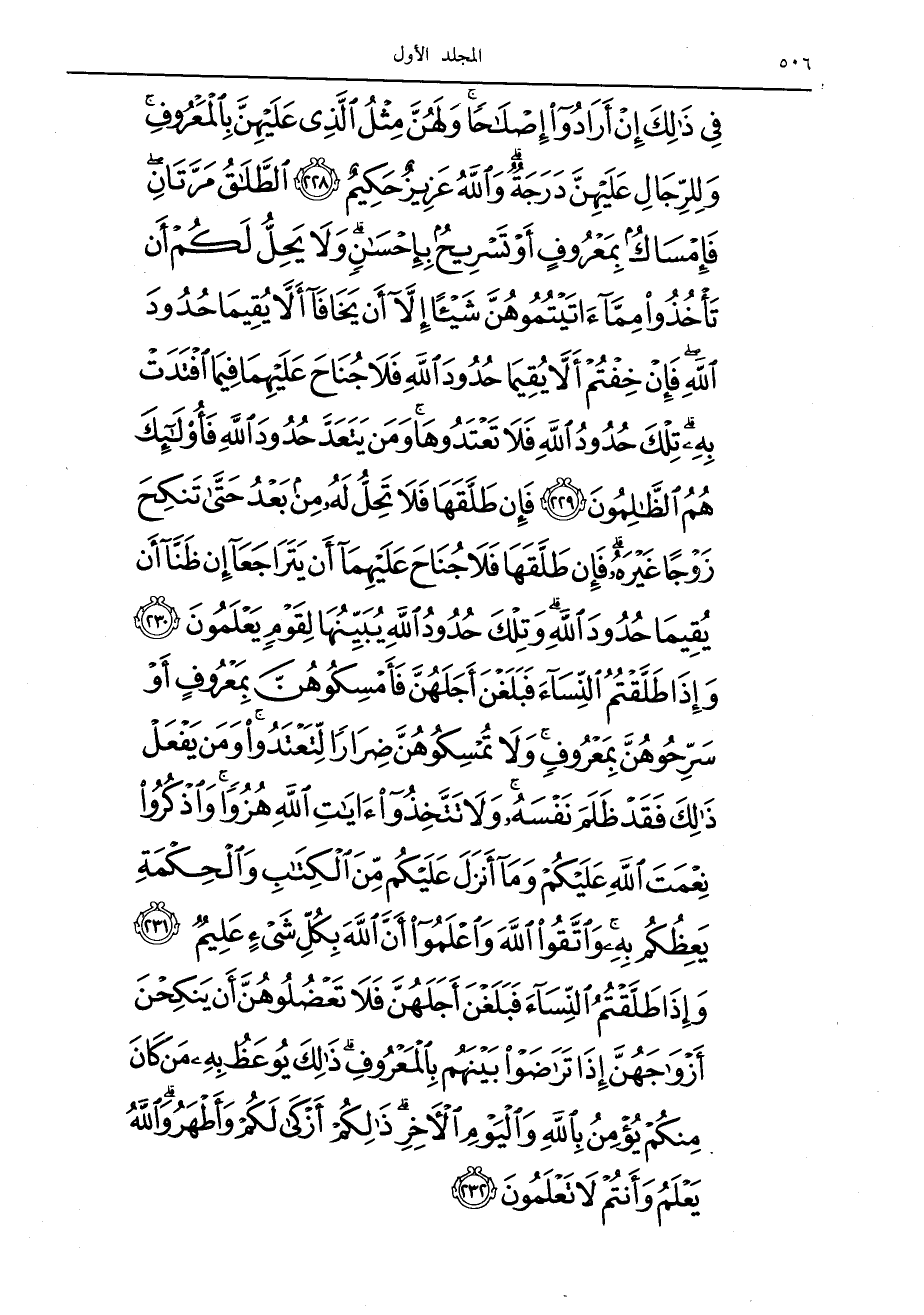 ٥٠٦ المجلد الأول
فِى ذَٰلِكَ إِنْ أَرَادُوٓا۟ إِصْلَـٰحًا ۚ وَلَهُنَّ مِثْلُ ٱلَّذِى عَلَيْهِنَّ بِٱلْمَعْرُوفِ ۚ
وَلِلرِّجَالِ عَلَيْهِنَّ دَرَجَةٌ ۗ وَٱللَّهُ عَزِيزٌ حَكِيمٌ ﴿٢٢٨﴾ ٱلطَّلَـٰقُ مَرَّتَانِ ۖ
فَإِمْسَاكٌۢ بِمَعْرُوفٍ أَوْ تَسْرِيحٌۢ بِإِحْسَـٰنٍ ۗ وَلَا يَحِلُّ لَكُمْ أَن
تَأْخُذُوا۟ مِمَّآ ءَاتَيْتُمُوهُنَّ شَيْـًٔا إِلَّآ أَن يَخَافَآ أَلَّا يُقِيمَا حُدُودَ
ٱللَّهِ ۖ فَإِنْ خِفْتُمْ أَلَّا يُقِيمَا حُدُودَ ٱللَّهِ فَلَا جُنَاحَ عَلَيْهِمَا فِيمَا ٱفْتَدَتْ
بِهِۦ ۗ تِلْكَ حُدُودُ ٱللَّهِ فَلَا تَعْتَدُوهَا ۚ وَمَن يَتَعَدَّ حُدُودَ ٱللَّهِ فَأُو۟لَـٰٓئِكَ
هُمُ ٱلظَّـٰلِمُونَ ﴿٢٢٩﴾ فَإِن طَلَّقَهَا فَلَا تَحِلُّ لَهُۥ مِنۢ بَعْدُ حَتَّىٰ تَنكِحَ
زَوْجًا غَيْرَهُۥ ۗ فَإِن طَلَّقَهَا فَلَا جُنَاحَ عَلَيْهِمَآ أَن يَتَرَاجَعَآ إِن ظَنَّآ أَن
يُقِيمَا حُدُودَ ٱللَّهِ ۗ وَتِلْكَ حُدُودُ ٱللَّهِ يُبَيِّنُهَا لِقَوْمٍ يَعْلَمُونَ ﴿٢٣٠﴾
وَإِذَا طَلَّقْتُمُ ٱلنِّسَآءَ فَبَلَغْنَ أَجَلَهُنَّ فَأَمْسِكُوهُنَّ بِمَعْرُوفٍ أَوْ
سَرِّحُوهُنَّ بِمَعْرُوفٍ ۚ وَلَا تُمْسِكُوهُنَّ ضِرَارًا لِّتَعْتَدُوا۟ ۚ وَمَن يَفْعَلْ
ذَٰلِكَ فَقَدْ ظَلَمَ نَفْسَهُۥ ۚ وَلَا تَتَّخِذُوٓا۟ ءَايَـٰتِ ٱللَّهِ هُزُوًا ۚ وَٱذْكُرُوا۟
نِعْمَتَ ٱللَّهِ عَلَيْكُمْ وَمَآ أَنزَلَ عَلَيْكُم مِّنَ ٱلْكِتَـٰبِ وَٱلْحِكْمَةِ
يَعِظُكُم بِهِۦ ۚ وَٱتَّقُوا۟ ٱللَّهَ وَٱعْلَمُوٓا۟ أَنَّ ٱللَّهَ بِكُلِّ شَىْءٍ عَلِيمٌ ﴿٢٣١﴾
وَإِذَا طَلَّقْتُمُ ٱلنِّسَآءَ فَبَلَغْنَ أَجَلَهُنَّ فَلَا تَعْضُلُوهُنَّ أَن يَنكِحْنَ
أَزْوَٰجَهُنَّ إِذَا تَرَٰضَوْا۟ بَيْنَهُم بِٱلْمَعْرُوفِ ۗ ذَٰلِكَ يُوعَظُ بِهِۦ مَن كَانَ
مِنكُمْ يُؤْمِنُ بِٱللَّهِ وَٱلْيَوْمِ ٱلْـَٔاخِرِ ۗ ذَٰلِكُمْ أَزْكَىٰ لَكُمْ وَأَطْهَرُ ۗ وَٱللَّهُ
يَعْلَمُ وَأَنتُمْ لَا تَعْلَمُونَ ﴿٢٣٢﴾